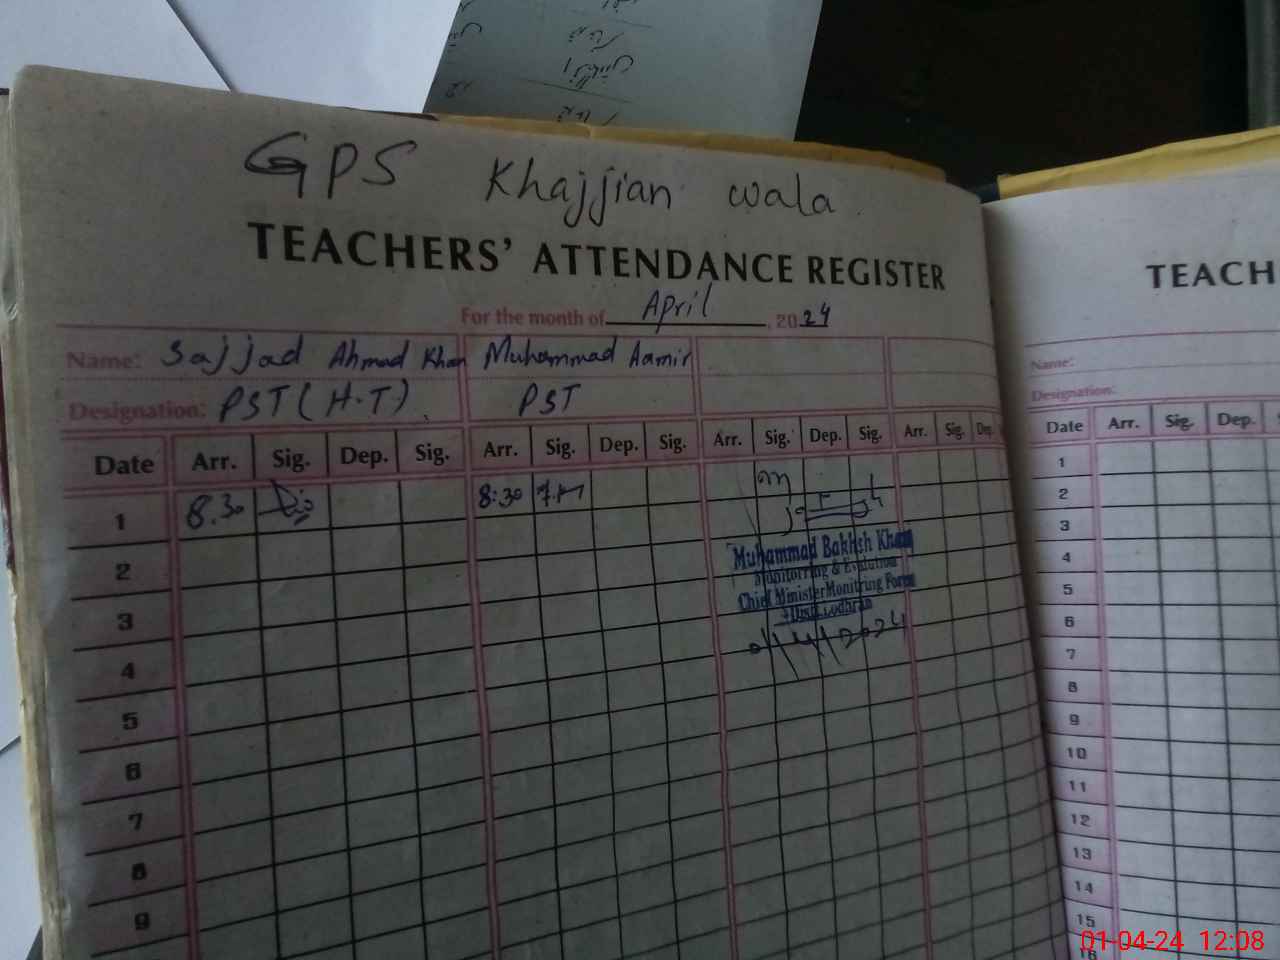 GPS Khajjian wala
TEACHERS' ATTENDANCE REGISTER
For the month of April, 2024
Name: Sajjad Ahmad Khan Muhammad Aamir
Designation: PST (H.T) PST
Date Arr. Sig. Dep. Sig. Arr. Sig. Dep. Sig. Arr. Sig. Dep. Sig. Arr. Sig. Dep.
1 8.30 8:30
2
3
4
5
6
7
8
9
Muhammad Bakhsh Khan
Monitorring & Evalution
Chief Minister Monitring Force
Distt. Lodhran
01/4/2024
TEACH
Name:
Designation:
Date Arr. Sig. Dep.
1
2
3
4
5
6
7
8
9
10
11
12
13
14
15
16
01-04-24 12:08